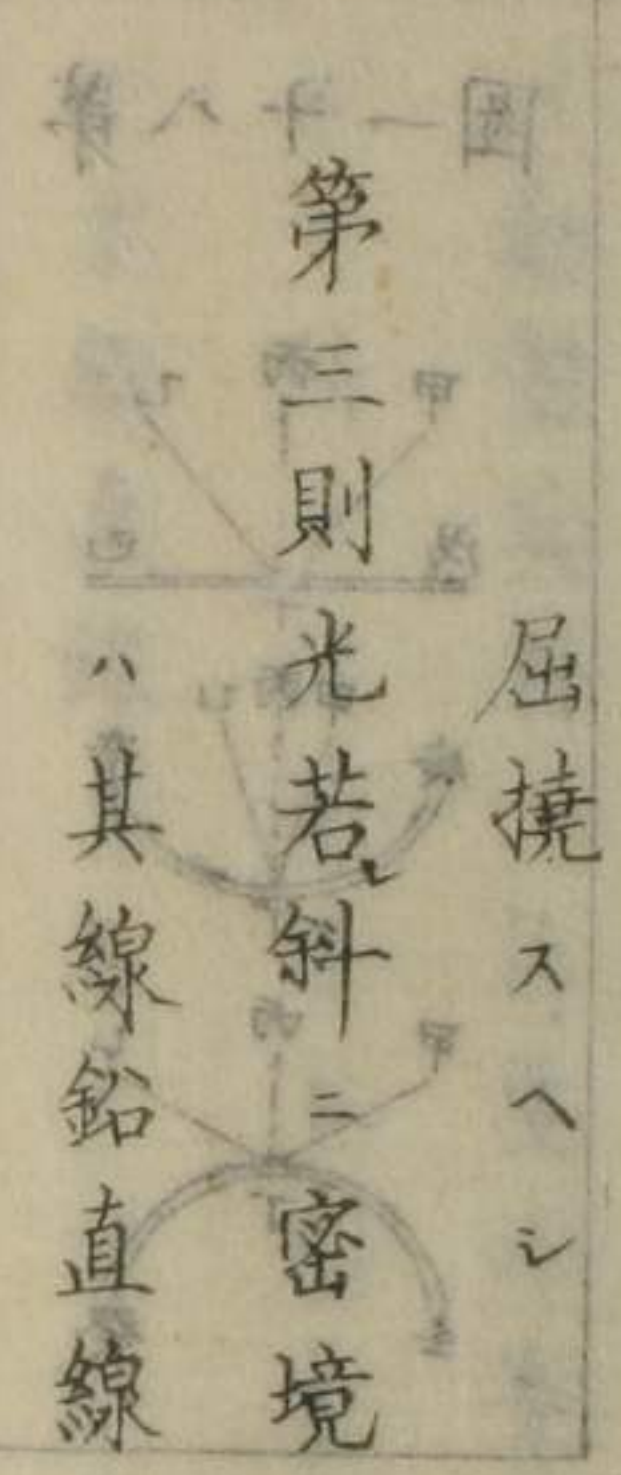 屈撓スヘシ
第三則光若シ斜ニ密境
ハ其線鉛直線